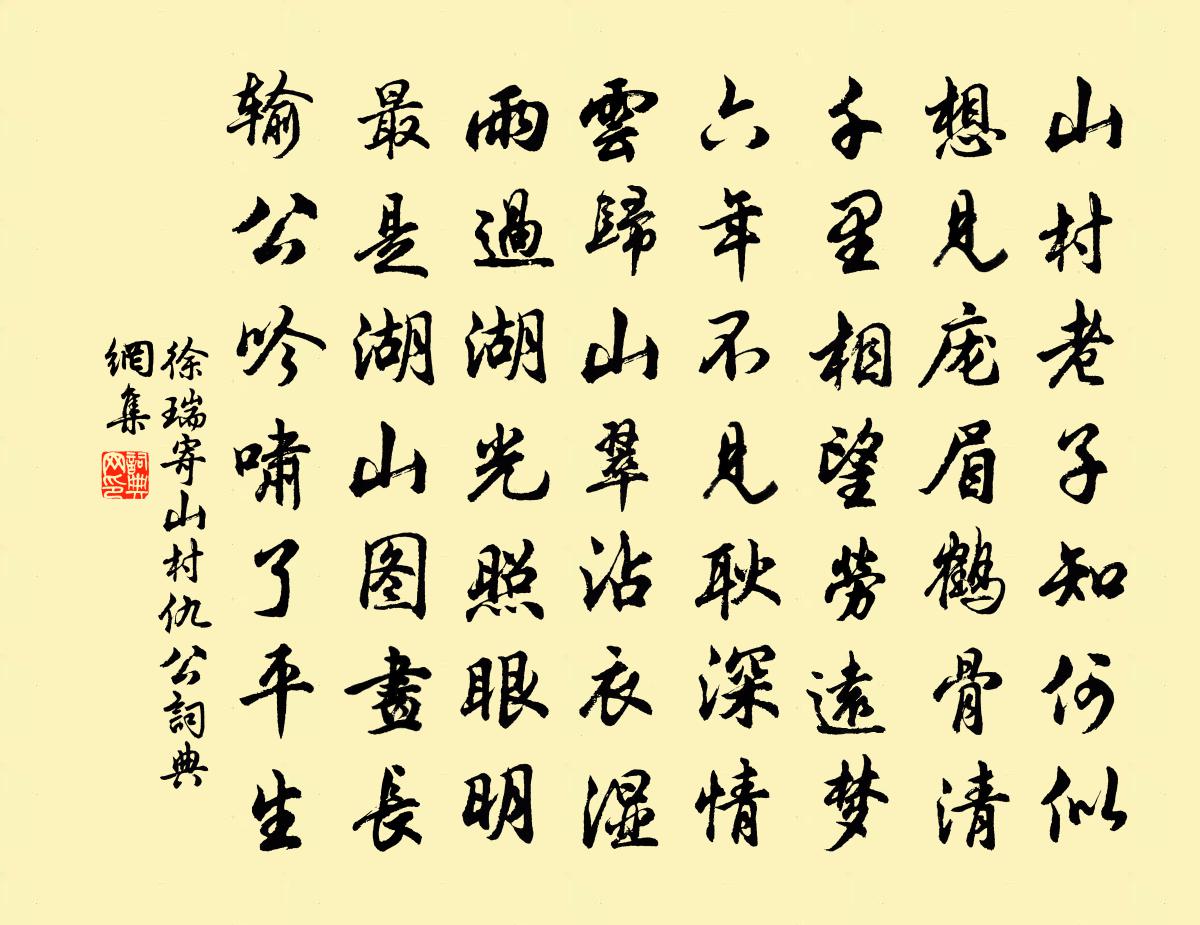 山村老子知何似
想見庞眉鶴骨清
千里相望勞遠梦
六年不見耿深情
雲歸山翠沾衣湿
雨過湖光照眼明
最是湖山图畫長
输公吟啸了平生
徐瑞寄山村仇公詞典
網集
詞典
网印